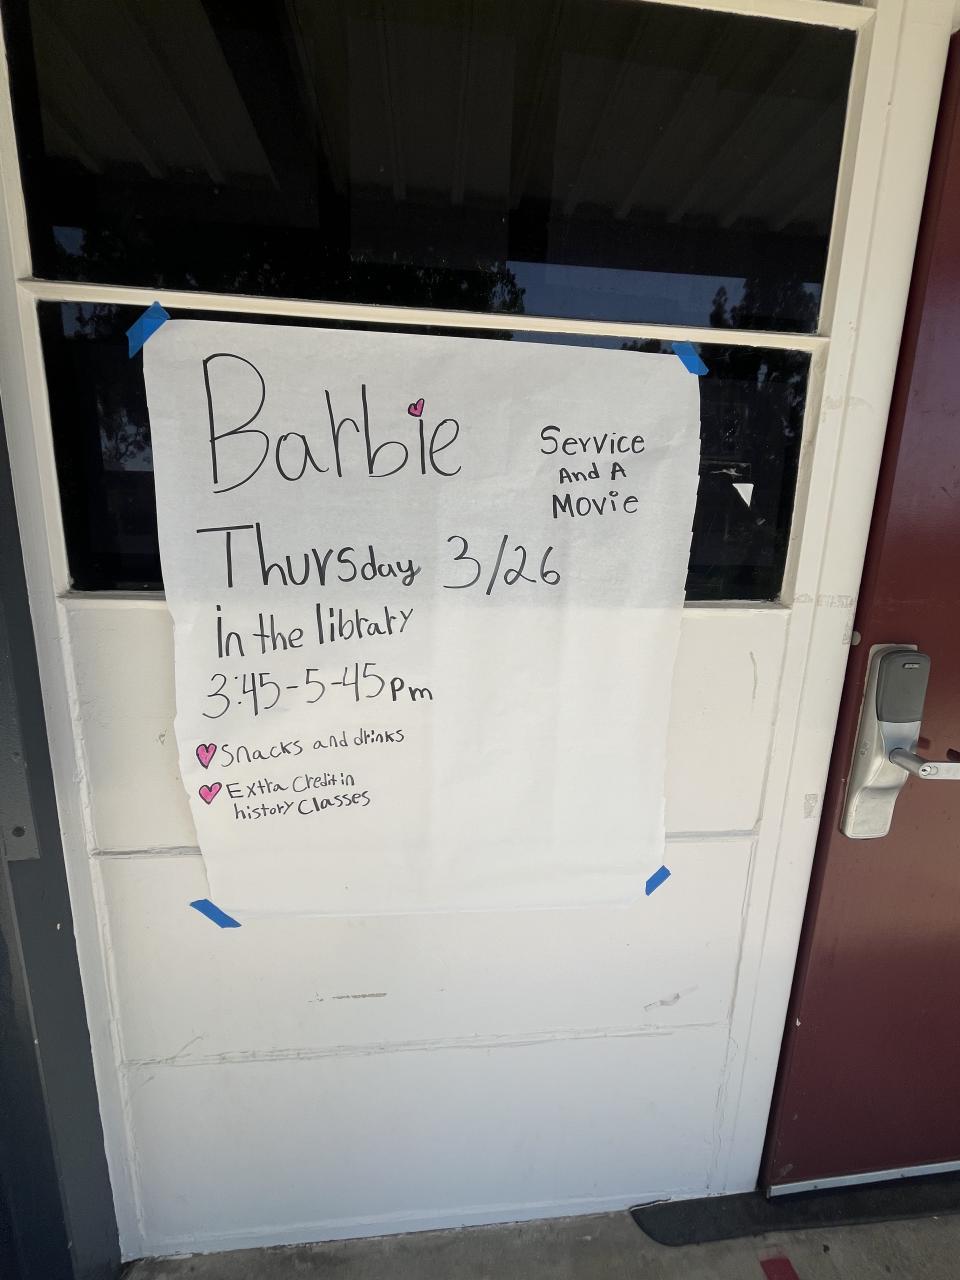 Barbie
Service
And A
Movie
Thursday 3/26
in the library
3:45-5-45pm
Snacks and drinks
Extra Credit in
history Classes